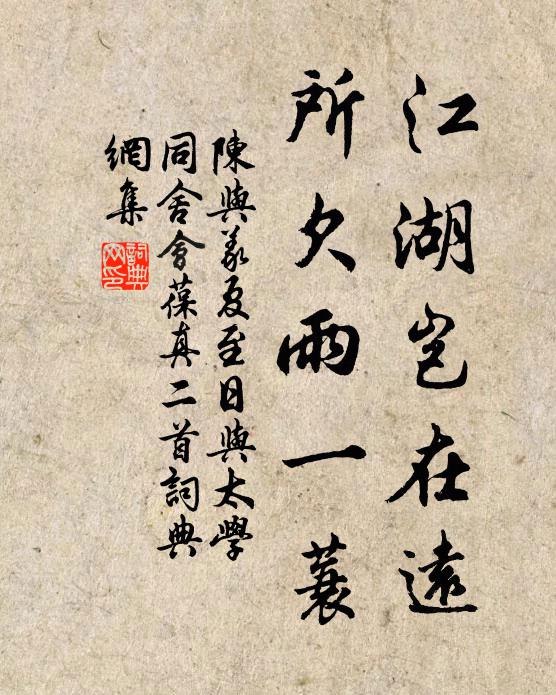 江湖岂在遠
所欠雨一蓑
陳與義夏至日與太學
同舍會葆真二首詞典
網集
詞典
网印